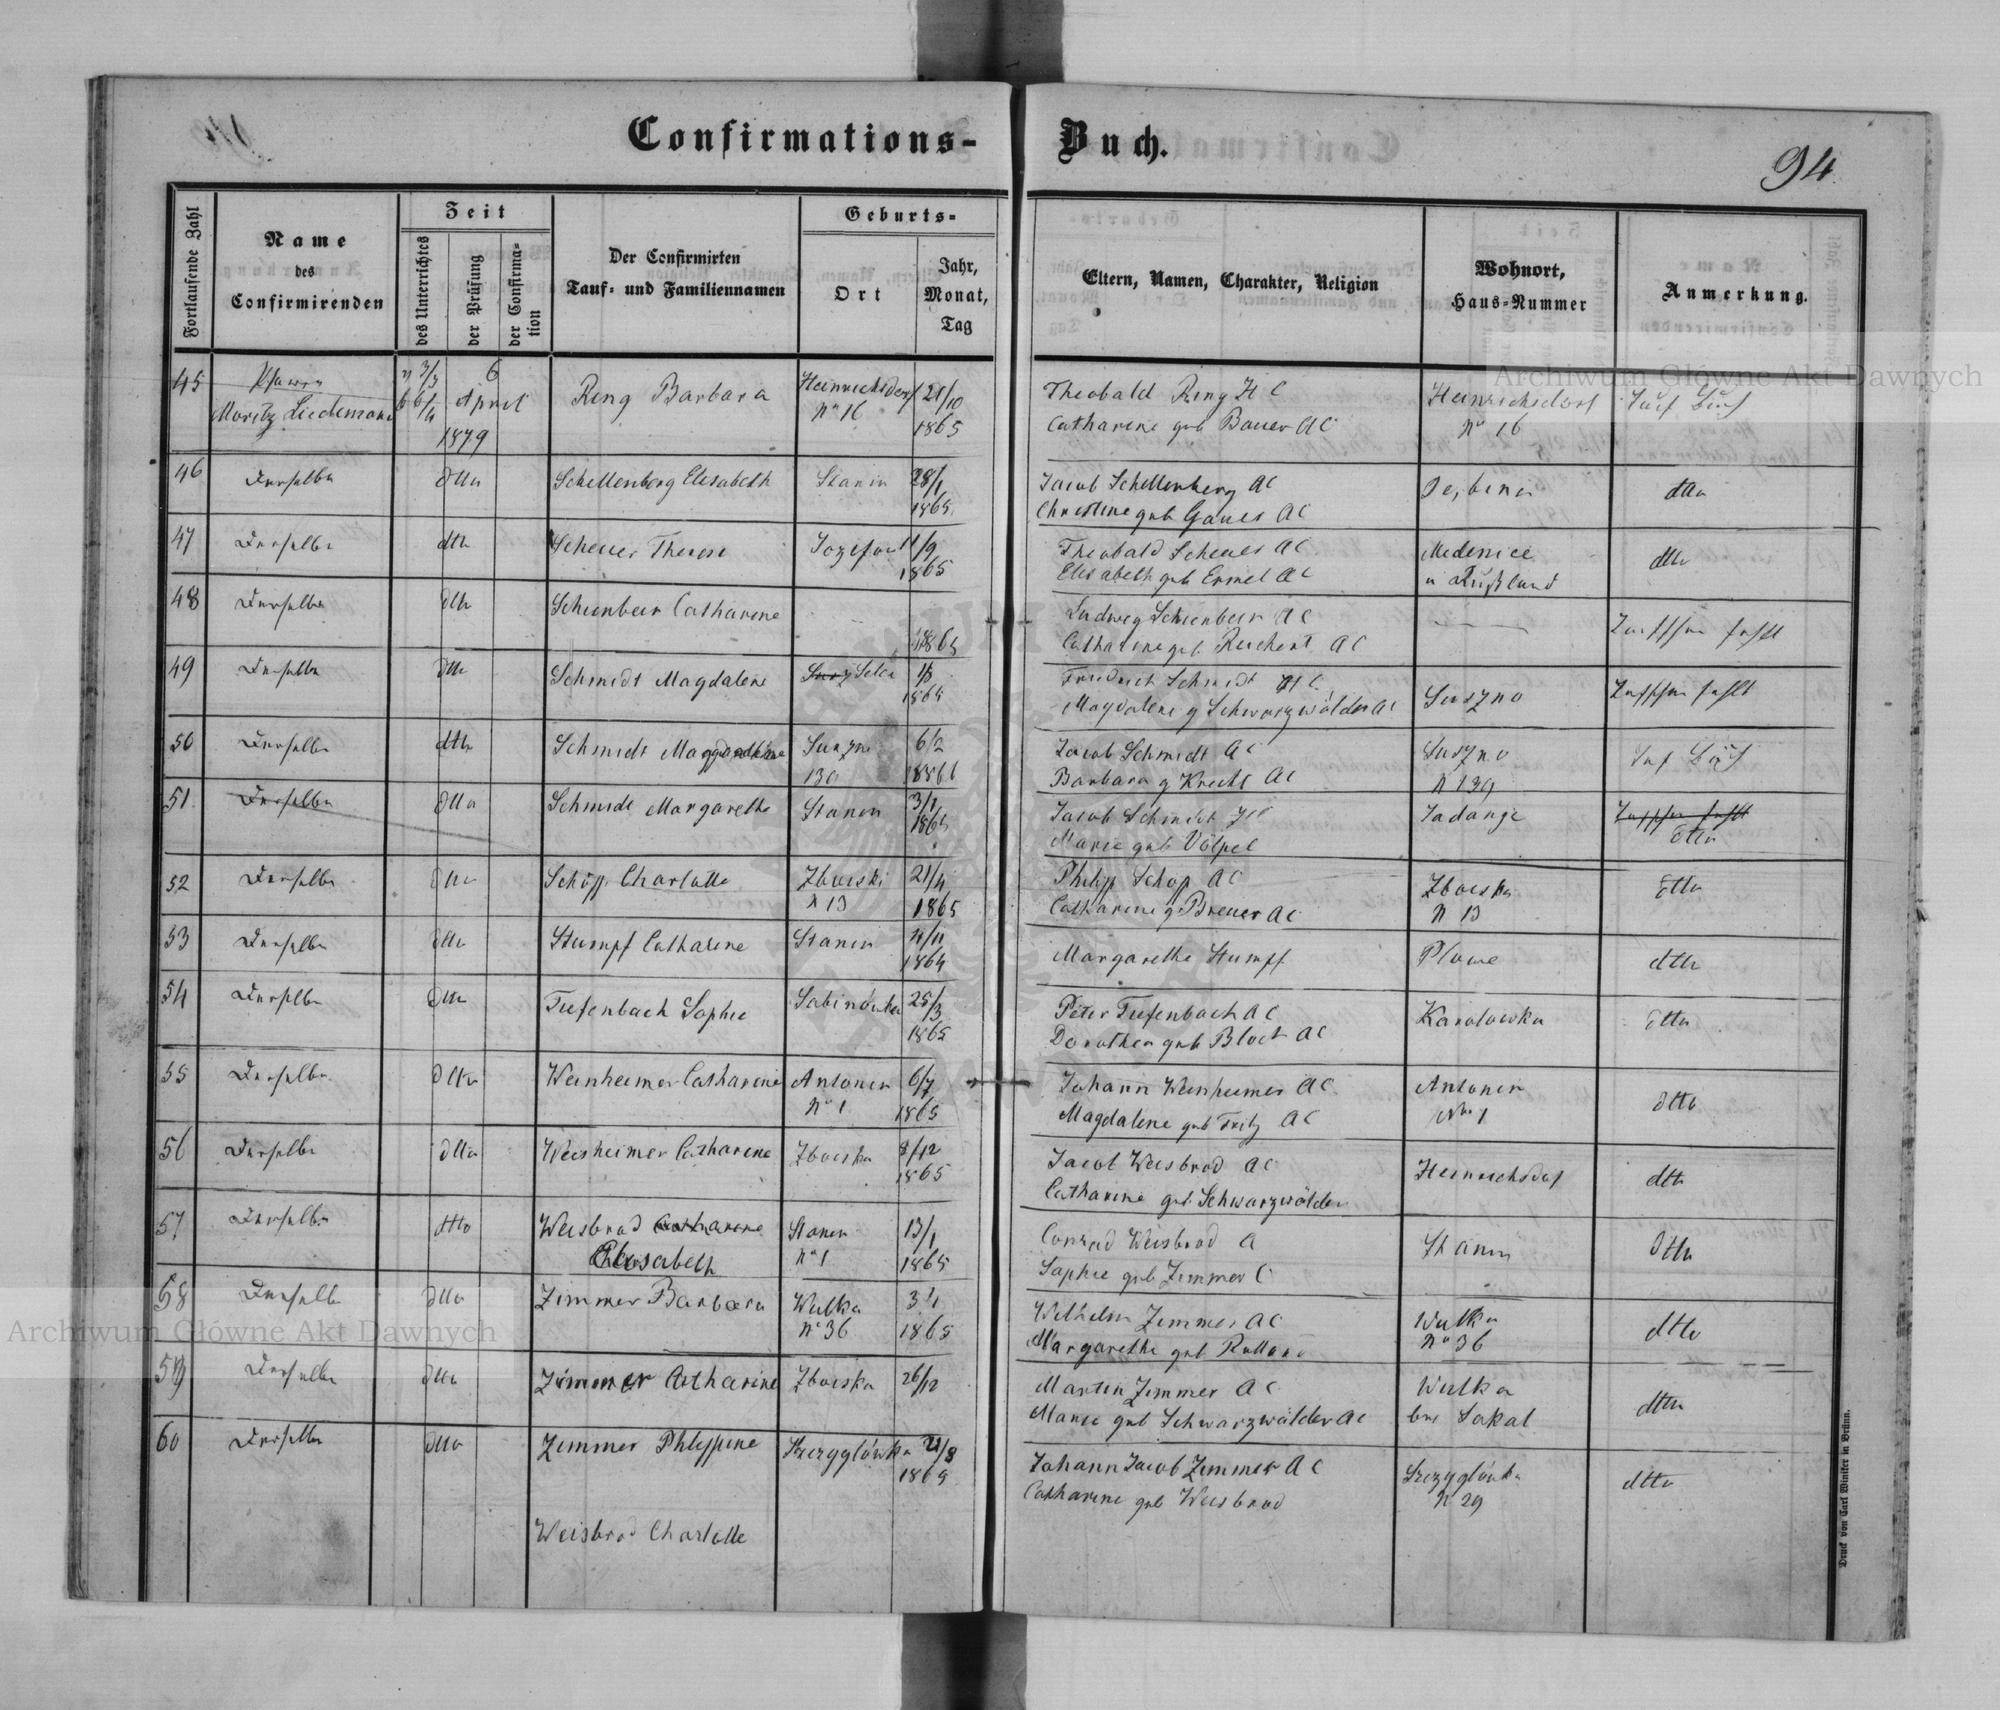 Confirmations-
Buch.
94
Fortlaufende Zahl
Name
des
Confirmirenden
Zeit
des Unterrichtes
der Prüfung
der Confirma-
tion
Der Confirmirten
Tauf- und Familiennamen
Geburts-
Ort
Jahr,
Monat,
Tag
Eltern, Namen, Charakter, Religion
Wohnort,
Haus-Nummer
Anmerkung.
45
Moritz Liedemann
3/3
6/4
6
April
1879
Ring Barbara
Heinrichsdorf
No 16
21/10
1865
Theobald Ring H C
Catharine geb Bauer AC
Heinrichsdorf
No 16
46
Derselbe
dtto
Schellenberg Elisabeth
Stanin
28/1
1865
Jacob Schellenberg AC
Christine geb Gauer AC
dtto
47
Derselbe
dtto
Scheuer Therese
1/9
1865
Theobald Scheuer AC
Elisabeth geb Ermel AC
Medenice
in Rußland
dtto
48
Derselbe
dtto
Schienbeir Catharine
1865
Ludwig Schienbeir AC
Catharine geb Reichert AC
49
Derselbe
dtto
Schmidt Magdalene
1865
Friedrich Schmidt H C
Magdalene g Schwarzwälder AC
Suszno
50
Derselbe
dtto
Schmidt
Suszno
139
6/2
Jacob Schmidt AC
Barbara g Knecht AC
Suszno
N 139
51
Derselbe
dtto
Schmidt Margarethe
Stanin
3/1
1865
Jacob Schmidt HC
Marie geb Völpel
Sadange
dtto
52
Derselbe
dtto
Schöpp Charlotte
Zboiska
N 13
21/4
1865
Philipp Schöp AC
Catharine g Breuer AC
Zboiska
N 13
dtto
53
Derselbe
dtto
Stumpf Catharine
Stanin
4/11
1864
Margarethe Stumpf
Plowe
dtto
54
Derselbe
dtto
Tiefenbach Sophie
Sabinówka
25/3
1865
Peter Tiefenbach AC
Dorothea geb Bloct AC
Karolowka
dtto
55
Derselbe
dtto
Weinheimer Catharine
Antonin
No 1
6/7
1865
Johann Weinheimer AC
Magdalene geb Fritz AC
Antonin
No 1
dtto
56
Derselbe
dtto
Weisheimer Catharine
Zboiska
8/12
1865
Jacob Weisbrod AC
Catharine geb Schwarzwälder
Heinrichsdof
dtto
57
Derselbe
dtto
Weisbrod Catharine
Elisabeth
Stanin
No 1
13/1
1865
Conrad Weisbrod A
Sophie geb Zimmer C
Stanin
dtto
58
Derselbe
dtto
Zimmer Barbara
Wulka
No 36
3/1
1865
Wilhelm Zimmer AC
Margarethe geb
Wulka
No 36
dtto
59
Derselbe
dtto
Zimmer Catharine
Zboiska
26/12
Martin Zimmer AC
Marie geb Schwarzwälder AC
Wulka
bei Sokal
dtto
60
Derselbe
dtto
Zimmer Philippine
Szczyglówka
21/8
1865
Johann Jacob Zimmer AC
Catharine geb Weisbrod
Szczyglówka
N 29
dtto
Weisbrod Charlotte
Druck von Carl Winiker in Brünn.
Archiwum Główne Akt Dawnych
Archiwum Główne Akt Dawnych